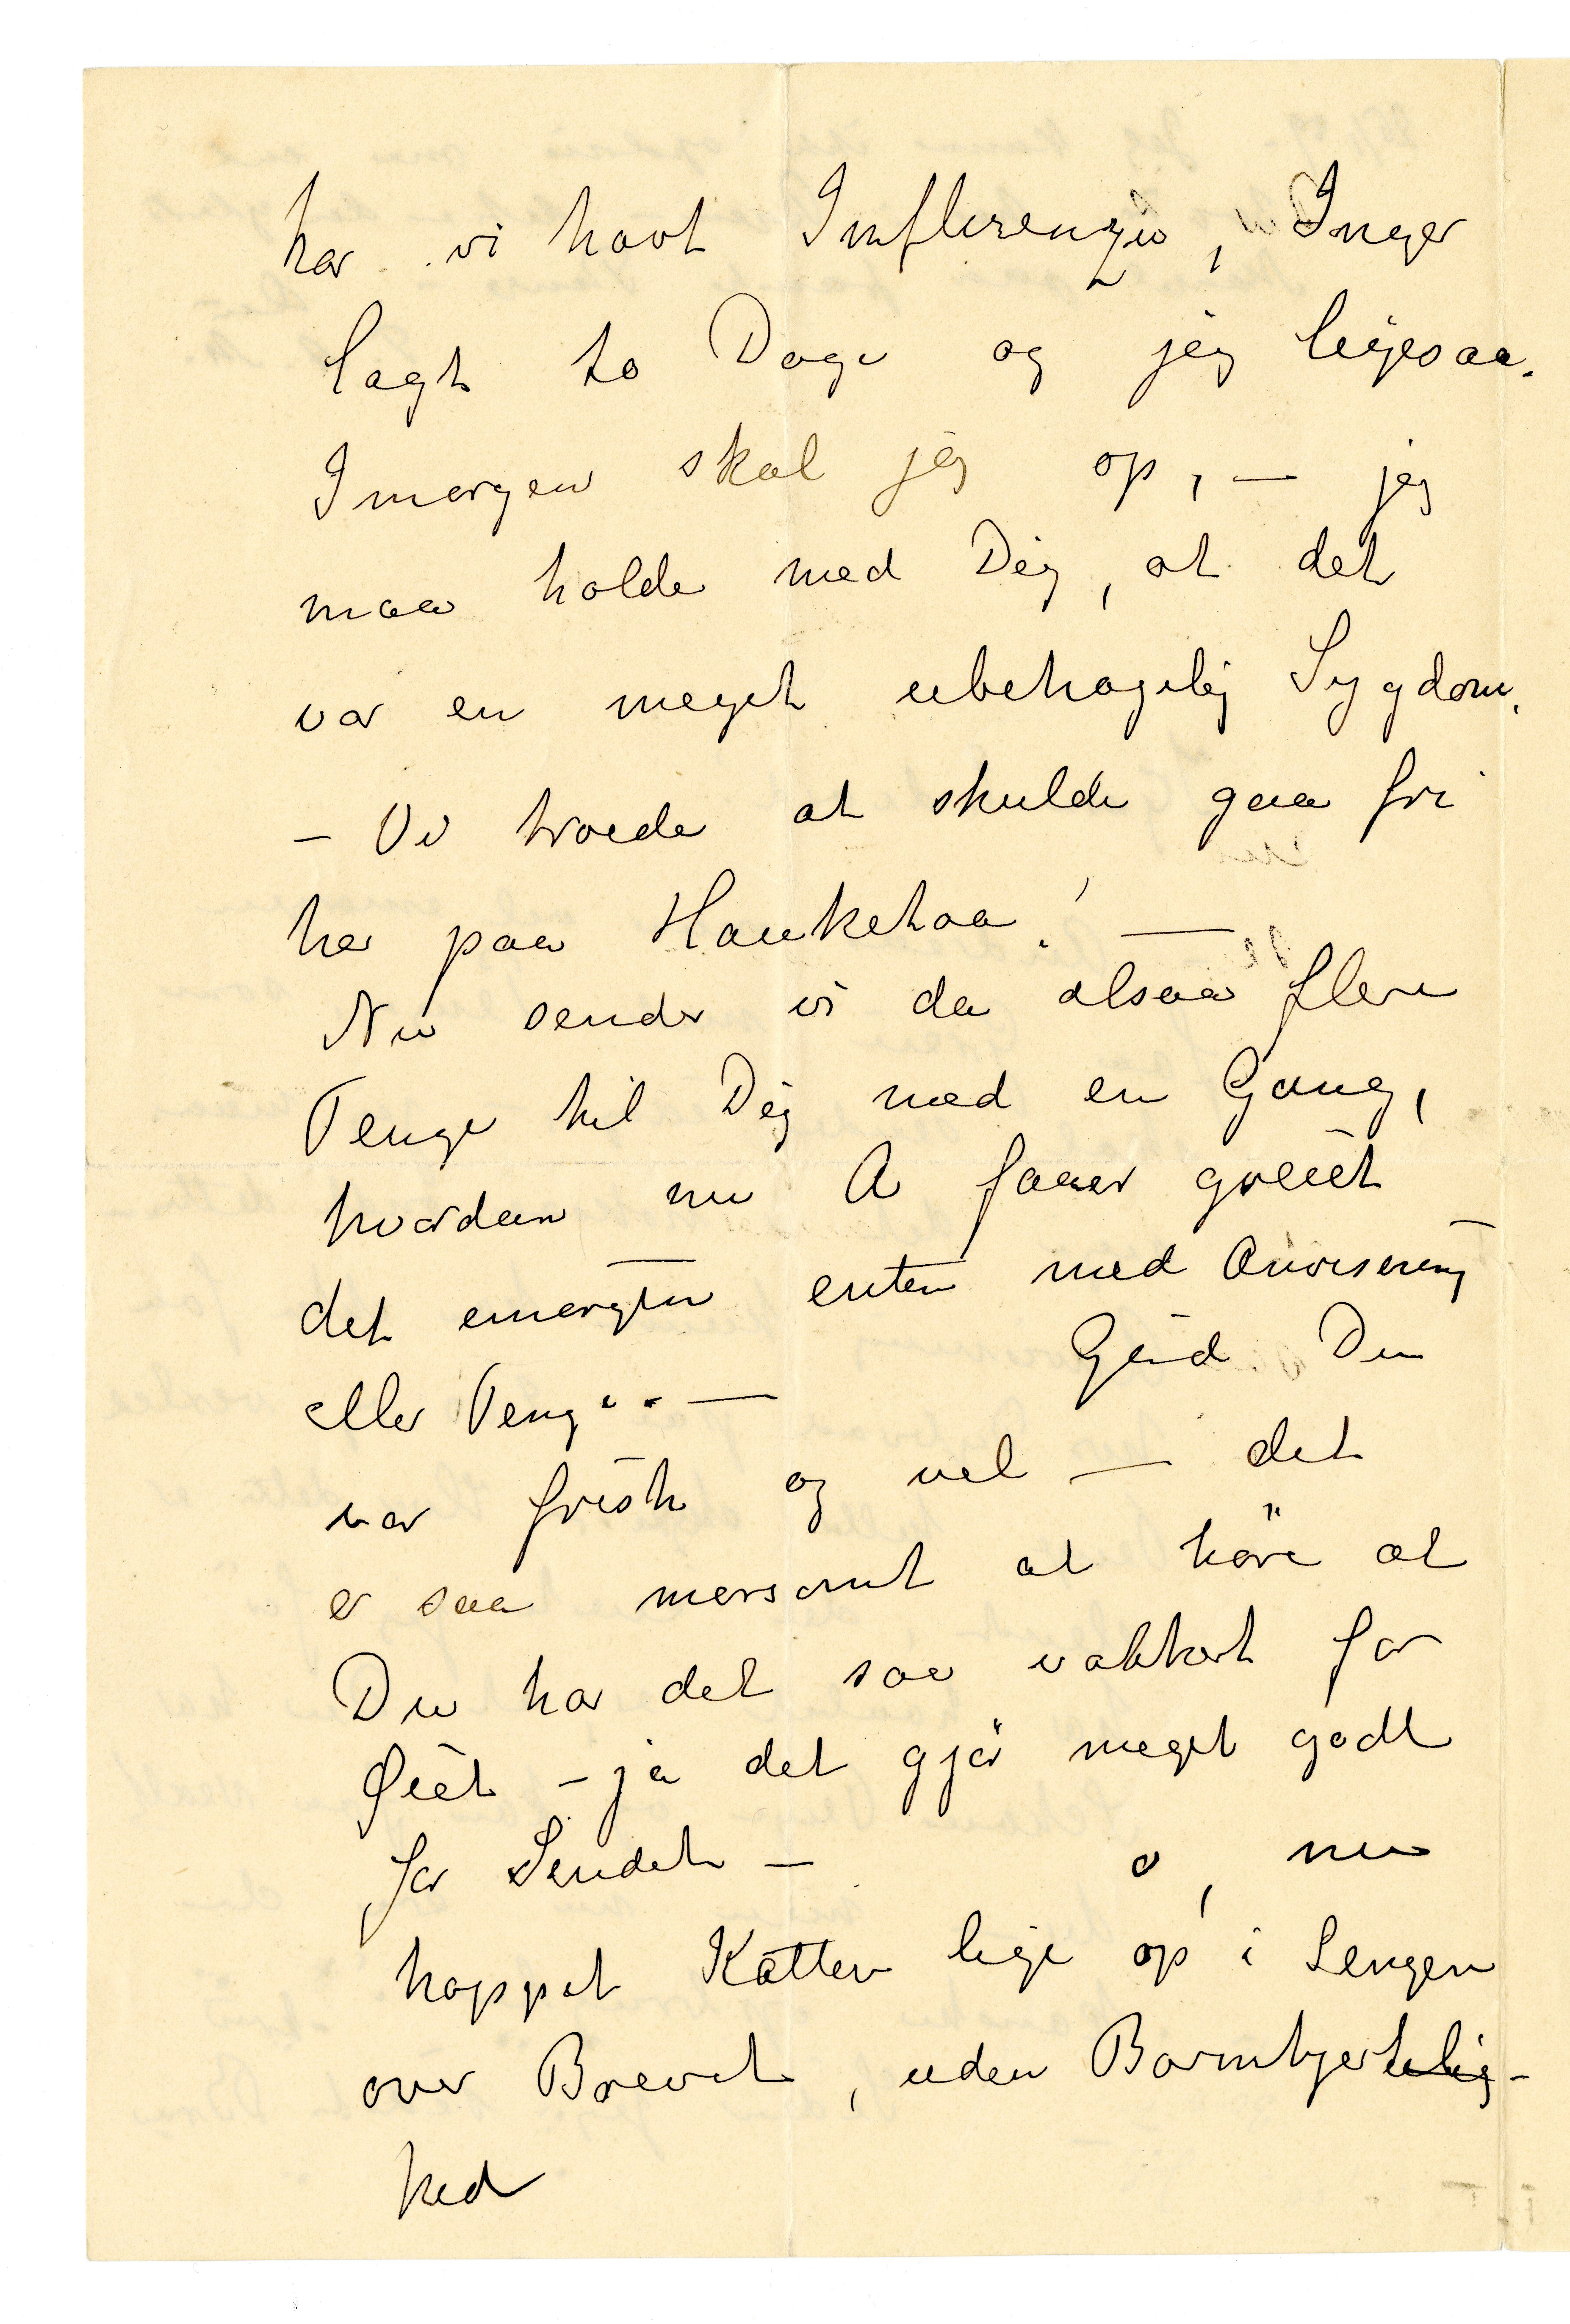 har vi havt Influenza, Inger
lagt to Dage og jeg ligesaa.
Imorgen skal jeg op, — jeg
maa holde med Dig, at det
var en meget ubehagelig Sygdom.
— Vi troede at skulde gaa fri
her paa Hauketoa! —
Nu sender vi da alsaa flere
Penge til Dig med en Gang,
hvordan nu A faaer greiet
det imorgen enten med Anvisning
eller Penge. — Gid Du
var frisk og vel — det
er saa morsomt at höre at
Du har det saa vakkert for
Øiet — ja det gjör meget godt
for Sindet — o, nu
hoppet Katten lige op i Sengen
over Brevet, uden Barmhjertelig-
hed